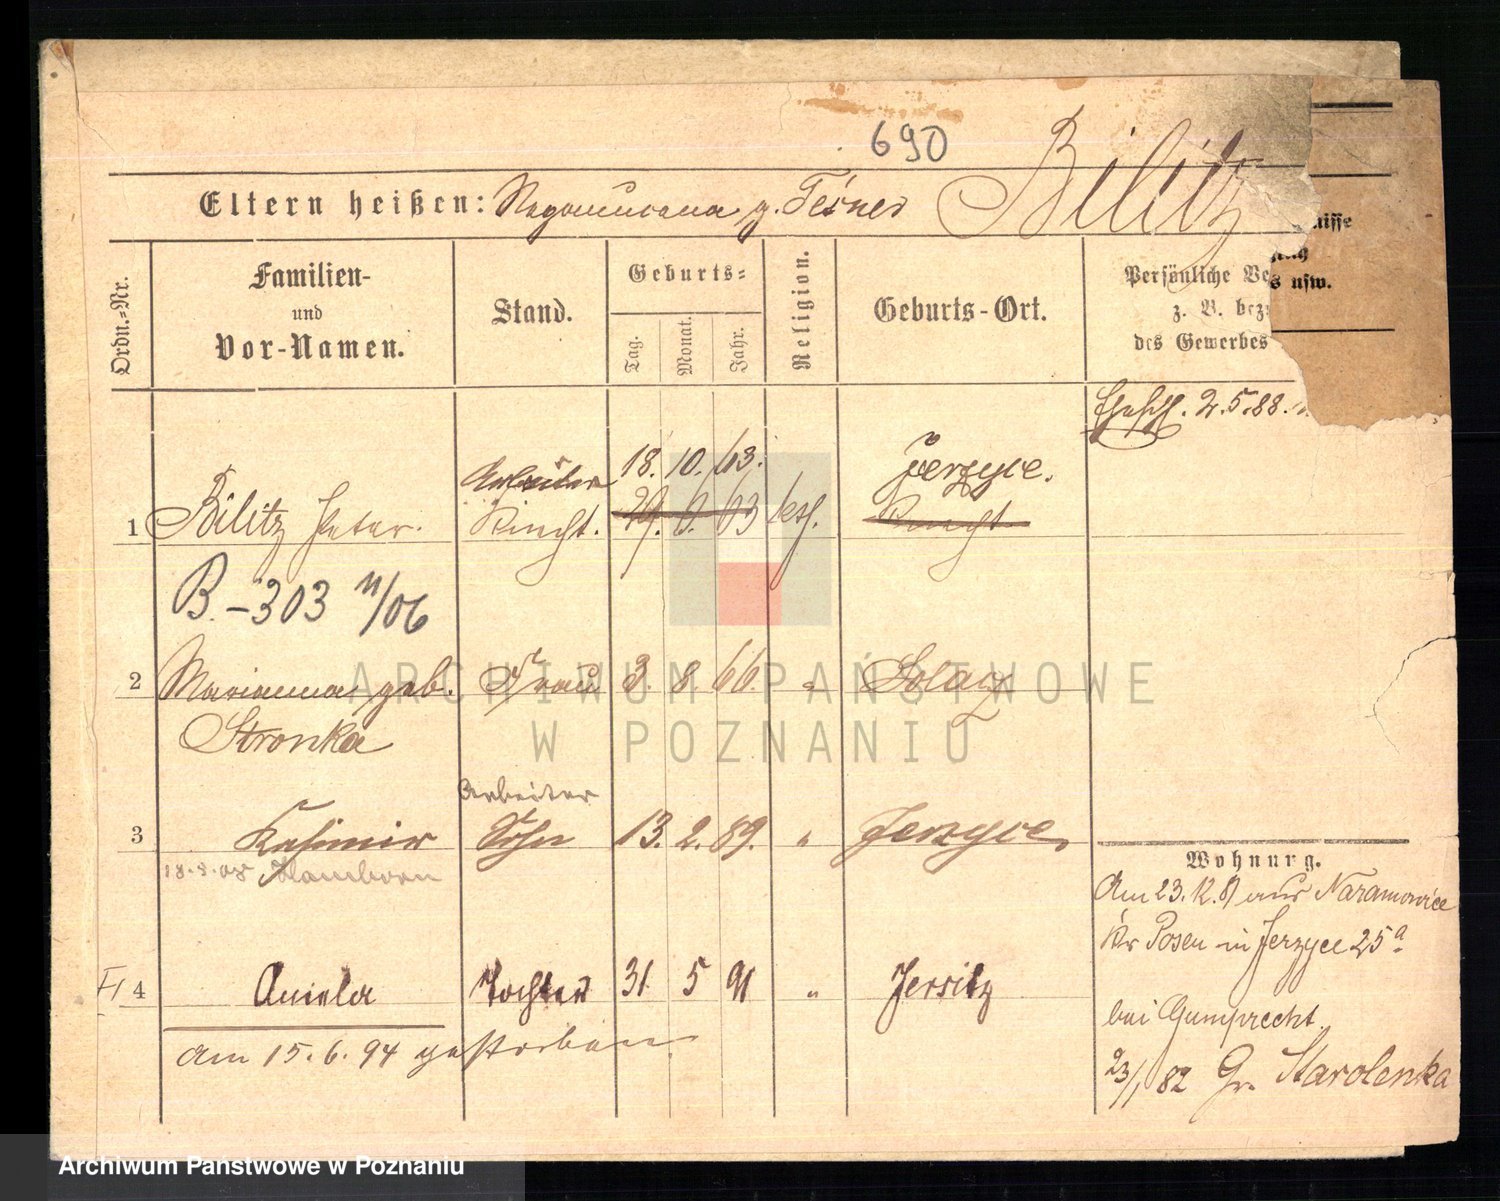 690
Eltern heißen: g. Bilitz
nisse
s usw.
Ordn.-Nr.
Familien-
und
Vor-Namen.
Stand.
Geburts-
Tag.
Monat.
Jahr.
Religion.
Geburts-Ort.
Persönliche Ve
z. B. bez
des Gewerbes
2.5.88.
Arbeiter 18. 10. 63. Jerzyce.
1 Bilitz Peter. Knecht. 29. 6. 63
B.-303 11/06
2 Marianna geb. Frau 3. 8 66. " Solacz
Stronka
Arbeiter
3 Kasimir Sohn 13. 2. 89. " Jerzyce
18.8.08 Hamborn
Wohnung.
Am 23.12.87 aus Naramowice
Kr Posen in Jerzyce 25a
4 Aniela Tochter 31. 5 91 " Jersitz
bei Gumprecht
am 15.6.94 gestorben
23/1 82 Gr. Starolenka
ARCHIWUM PAŃSTWOWE
W POZNANIU
Archiwum Państwowe w Poznaniu